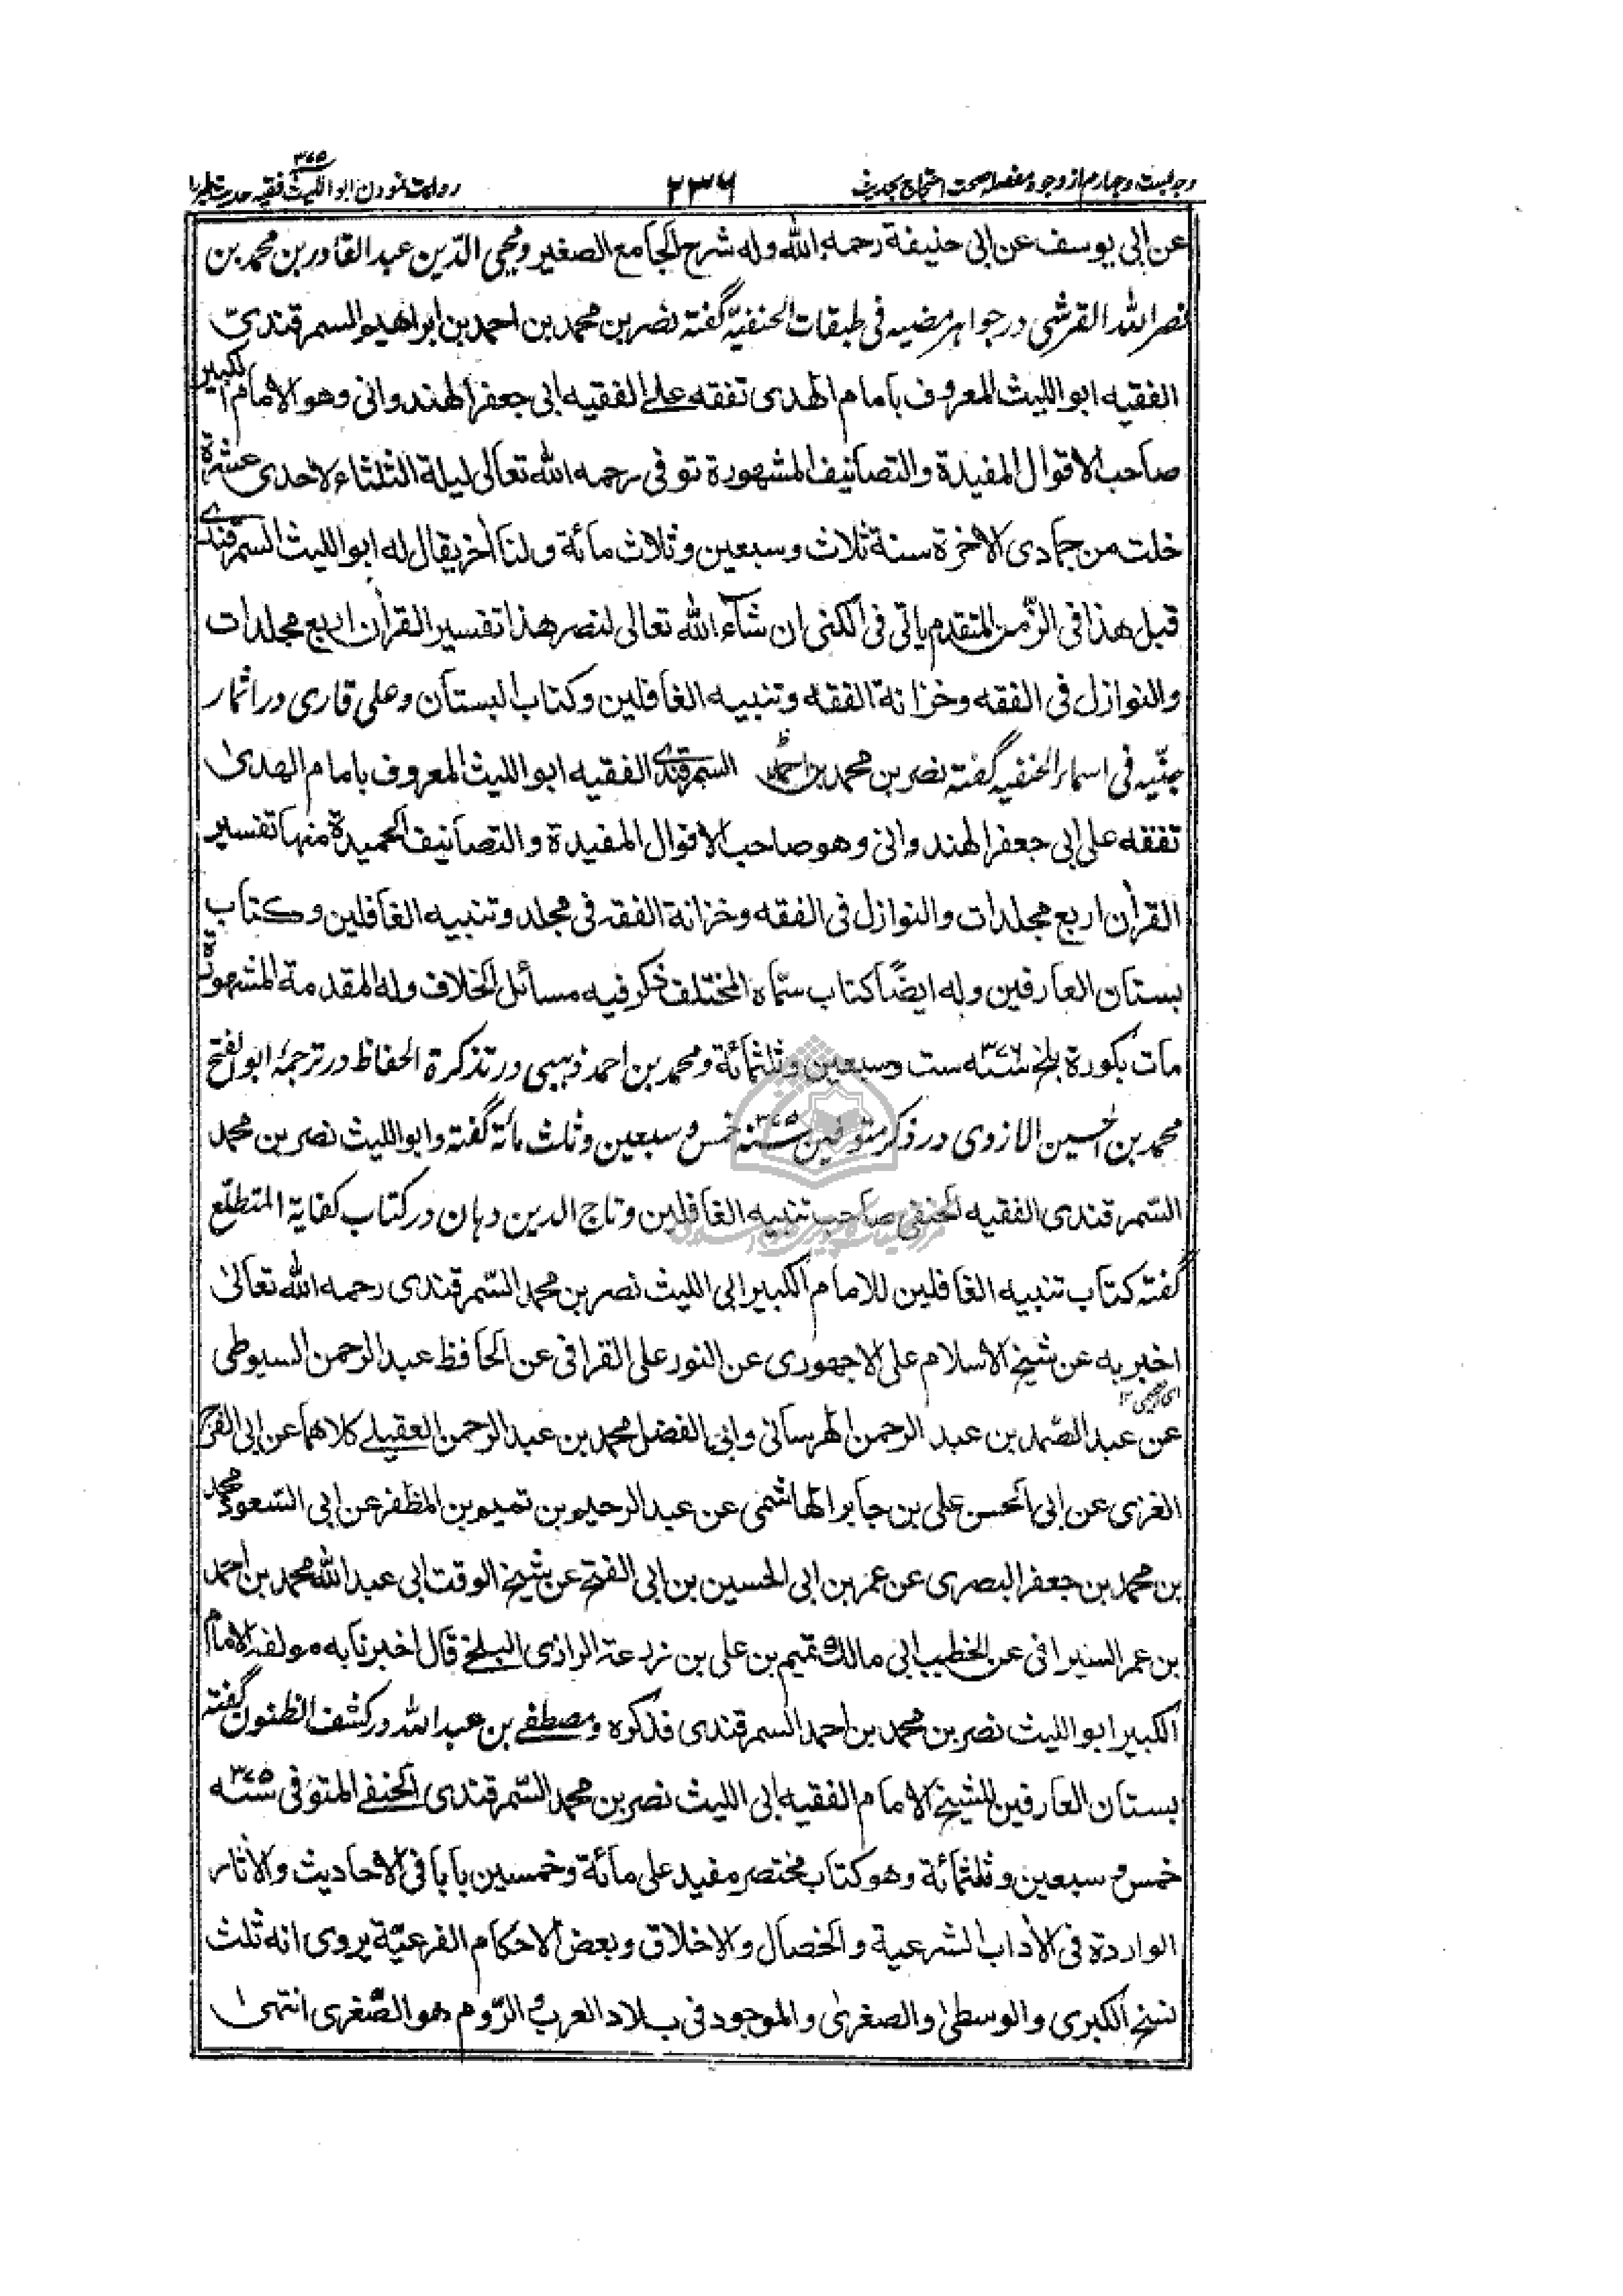 وجه بیست و چهارم از وجوه مفصله صحت احتجاج بحدیث
۲۳۶
روایت نمودن ابو اللیث فقیه حدیث
۳۷۵
عن ابی یوسف عن ابی حنیفة رحمه الله وله شرح الجامع الصغیر و محیی الدّین عبد القادر بن محمد بن
نصر الله القرشی در جواهر مضیه فی طبقات الحنفیّة گفته نصر بن محمد بن احمد بن ابراهیم السمرقندیّ
الفقیه ابو اللیث المعروف بامام الهدی تفقه علی الفقیه ابی جعفر الهندوانی وهو الامام الکبیر
صاحب الاقوال المفیدة والتصانیف المشهورة توفی رحمه الله تعالی لیلة الثلثاء لاحدی عشرة
خلت من جمادی الاخرة سنة ثلاث وسبعین وثلاث مائة ولنا اخر یقال له ابو اللیث السمرقندی
قبل هذا فی الزّمن المتقدم یاتی فی الکنی ان شآء الله تعالی لنصر هذا تفسیر القرآن اربع مجلدات
والنوازل فی الفقه وخزانة الفقه وتنبیه الغافلین وکتاب البستان و علی قاری در اثمار
جنیّه فی اسماء الحنفیه گفته نصر بن محمد بن السمرقندی الفقیه ابو اللیث المعروف بامام الهدیٰ
تفقه علی ابی جعفر الهندوانی وهو صاحب الاقوال المفیدة والتصانیف الحمیدة منها تفسیر
القرآن اربع مجلدات والنوازل فی الفقه وخزانة الفقه فی مجلد وتنبیه الغافلین وکتاب
بستان العارفین وله ایضًا کتاب سمّاه المختلف ذکر فیه مسائل الخلاف وله المقدمة المشهورة
مات بکورة بلخ سنة ۳۷۶ ست وسبعین وثلثمائة و محمد بن احمد ذهبی در تذکرة الحفاظ در ترجمهٔ ابو الفتح
محمد بن الحسین الازدی در ذکر متوفین سنة ۳۷۵ خمس و سبعین وثلث مائة گفته وابو اللیث نصر بن محمد
السّمرقندی الفقیه الحنفی صاحب تنبیه الغافلین و تاج الدین دهان در کتاب کفایة المتطلّع
گفته کتاب تنبیه الغافلین للامام الکبیر ابی اللیث نصر بن محمد السّمرقندی رحمه الله تعالیٰ
اخبر به عن شیخ الاسلام علی الاجهوری عن النور علی القرافی عن الحافظ عبد الرحمن السیوطی
عن عبد الصّمد بن عبد الرحمن الهرسانی وابی الفضل محمد بن عبد الرحمن العقیلی کلاهما عن ابی الفرج
الغزی عن ابی الحسن علی بن جابر الهاشمی عن عبد الرحیم بن تمیم بن المظفر عن ابی السّعود محمد
بن محمد بن جعفر البصری عن عمر بن ابی الحسین بن ابی الفتح عن شیخ الوقت ابی عبد الله محمد بن احمد
بن عمر السیرافی عن الخطیب ابی مالک تمیم بن علی بن زرعة الرازی البلخی قال اخبرنا به مولفه الامام
الکبیر ابو اللیث نصر بن محمد بن احمد السمرقندی فذکره و مصطفی بن عبد الله در کشف الظنون گفته
بستان العارفین للشیخ الامام الفقیه ابی اللیث نصر بن محمد السّمرقندی الحنفی المتوفی سنة ۳۷۵
خمس و سبعین وثلثمائة وهو کتاب مختصر مفید علی مائة وخمسین بابا فی الاحادیث والاثار
الواردة فی الآداب الشرعیة والخصال والاخلاق وبعض الاحکام الفرعیّة یروی انه ثلث
نسخ الکبری والوسطیٰ والصغریٰ والموجود فی بلاد العرب و الرّوم هو الصّغری انتهی